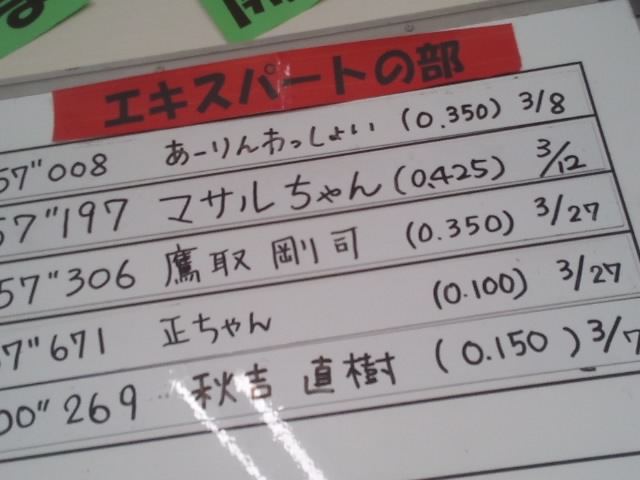 エキスパートの部
57"008 あーりんわっしょい (0.350) 3/8
57"197 マサルちゃん (0.425) 3/12
57"306 鷹取 剛司 (0.350) 3/27
57"671 正ちゃん (0.100) 3/27
00"269 秋吉 直樹 (0.150) 3/7